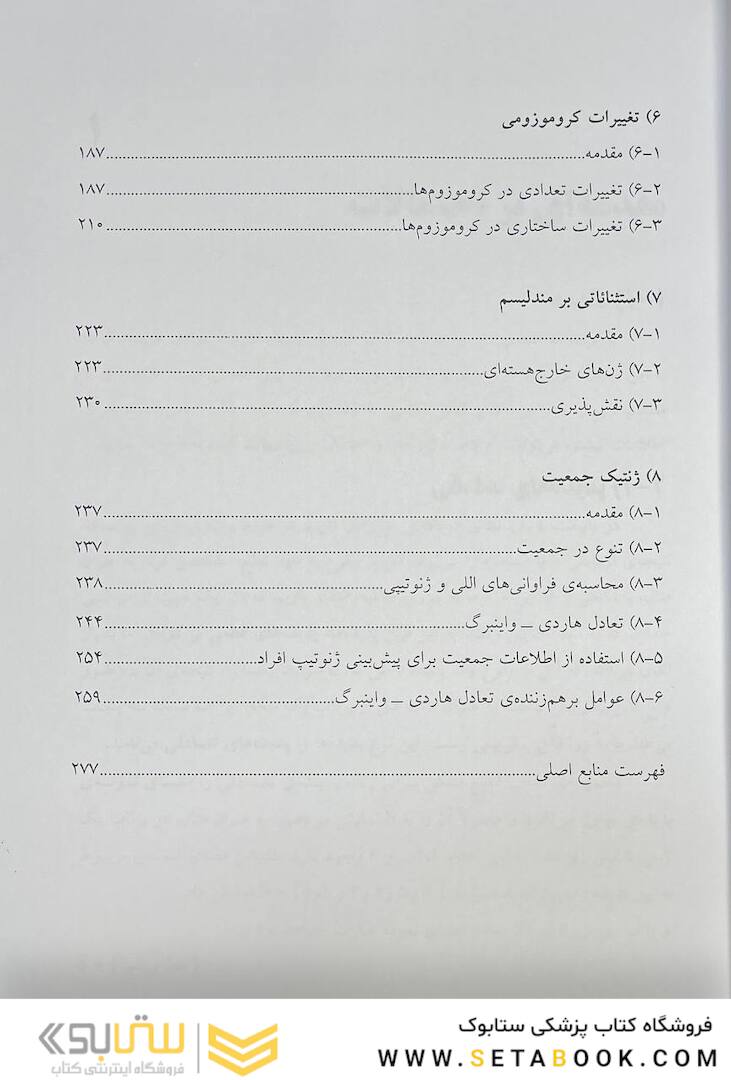 ۶) تغییرات کروموزومی
۶–۱) مقدمه..........۱۸۷
۶–۲) تغییرات تعدادی در کروموزوم‌ها..........۱۸۷
۶–۳) تغییرات ساختاری در کروموزوم‌ها..........۲۱۰
۷) استثنائاتی بر مندلیسم
۷–۱) مقدمه..........۲۲۳
۷–۲) ژن‌های خارج‌هسته‌ای..........۲۲۳
۷–۳) نقش‌پذیری..........۲۳۰
۸) ژنتیک جمعیت
۸–۱) مقدمه..........۲۳۷
۸–۲) تنوع در جمعیت..........۲۳۷
۸–۳) محاسبه‌ی فراوانی‌های اللی و ژنوتیپی..........۲۳۸
۸–۴) تعادل هاردی – واینبرگ..........۲۴۴
۸–۵) استفاده از اطلاعات جمعیت برای پیش‌بینی ژنوتیپ افراد..........۲۵۴
۸–۶) عوامل برهم‌زننده‌ی تعادل هاردی – واینبرگ..........۲۵۹
فهرست منابع اصلی..........۲۷۷
فروشگاه کتاب پزشکی ستابوک
WWW.SETABOOK.COM
ستابوک
فروشگاه اینترنتی کتاب